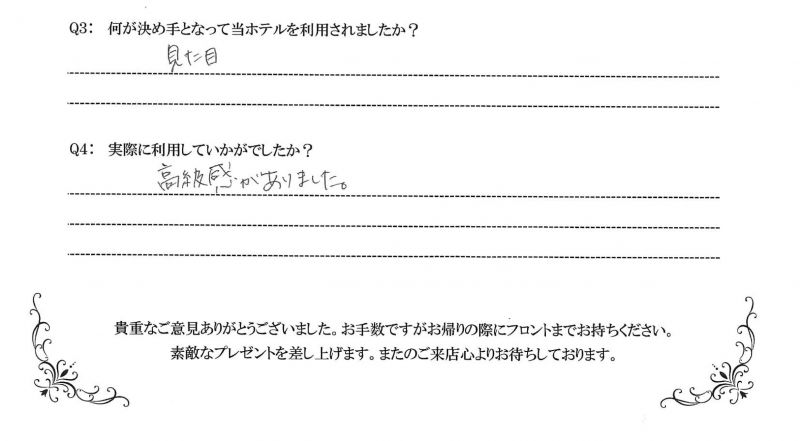 Q3: 何が決め手となって当ホテルを利用されましたか?
見た目
Q4: 実際に利用していかがでしたか?
高級感がありました。
貴重なご意見ありがとうございました。お手数ですがお帰りの際にフロントまでお持ちください。
素敵なプレゼントを差し上げます。またのご来店心よりお待ちしております。